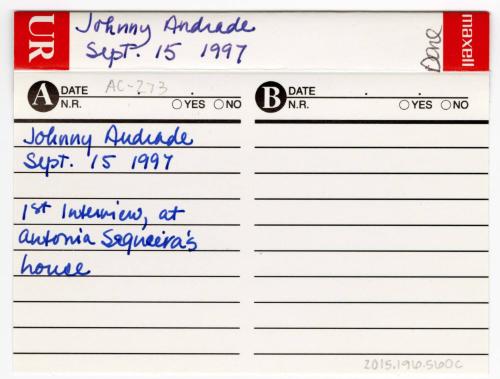 UR
Johnny Andrade
Sept. 15 1997
Done
maxell
A DATE AC-273 . .
N.R. ○YES ○NO
B DATE . .
N.R. ○YES ○NO
Johnny Andrade
Sept. 15 1997
1st Interview, at
Antonia Sequeira's
house
2015.196.560c